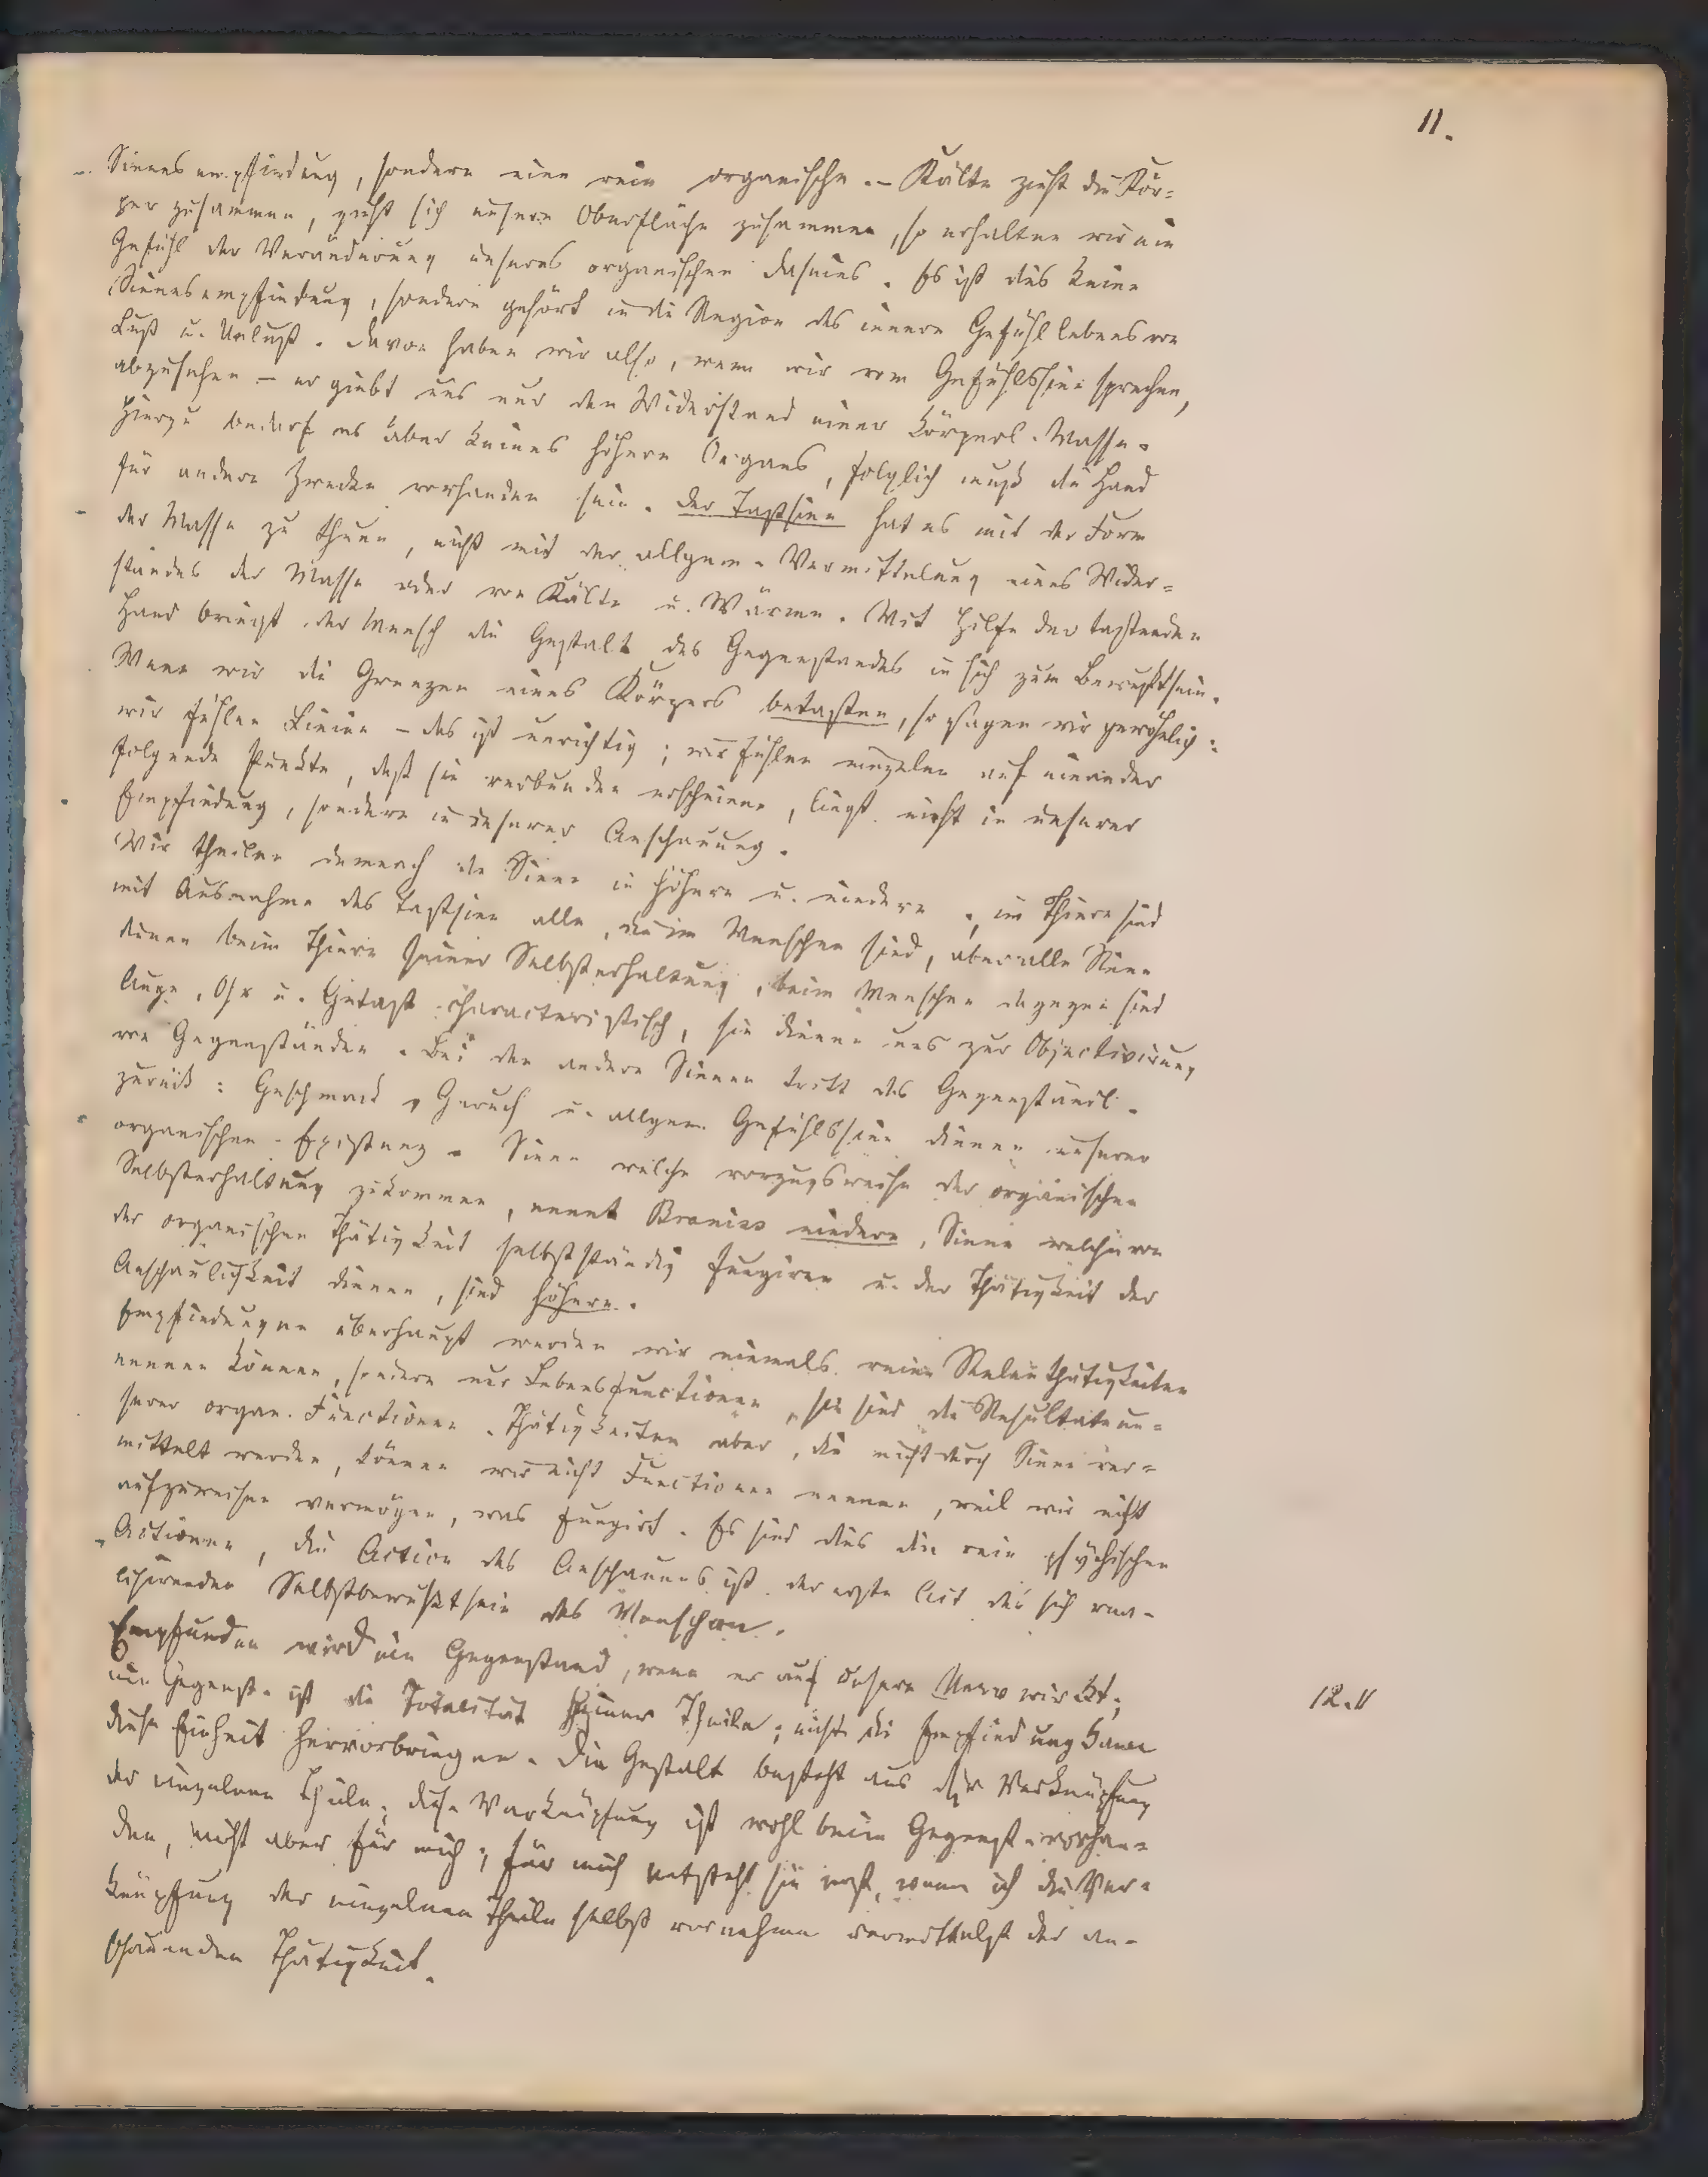 11.
Sinnesempfindung, sondern eine rein organische. – Kälte zieht die Kör=
per zusammen, zieht sich unsere Oberfläche zusammen, so erhalten wir ein
Gefühl der Veränderung unseres organischen Daseins. Es ist dies keine
Sinnesempfindung, sondern gehört in die Region des innern Gefühllebens von
Lust u. Unlust. Davon haben wir also, wenn wir vom Gefühlssinn sprechen,
abzusehen – er giebt uns nur den Widerstand einer körperl. Masse.
Hierzu bedarf es aber keines höhern Organs, folglich muß die Hand
für andere Zwecke vorhanden sein. Der Tastsinn hat es mit der Form
der Masse zu thuen, nicht mit der allgem. Vermittelung eines Wider=
standes der Masse oder von Kälte u. Wärme. Mit Hilfe der tastenden
Hand bringt der Mensch die Gestalt des Gegenstandes in sich zum Bewußtsein.
Wenn wir die Grenzen eines Körpers betasten, so sagen wir gewöhnlich:
wir fühlen Linien – das ist unrichtig; wir fühlen einzelne auf einander
folgende Punkte, daß sie verbunden erscheinen, liegt nicht in unserer
Empfindung, sondern in unserer Anschauung.
Wir theilen demnach die Sinne in höhere u. niedere, im Thiere sind
mit Ausnahme des Tastsinn alle, die im Menschen sind, aber alle Sinne
dienen beim Thiere seiner Selbsterhaltung, beim Menschen dagegen sind
Auge, Ohr u. Getast characteristisch, sie dienen uns zur Objectivirung
von Gegenständen. Bei den andern Sinnen tritt das Gegenständl.
zurück: Geschmack, Geruch u. allgem. Gefühlssinn dienen unserer
organischen Existenz. Sinne welche vorzugsweise der organischen
Selbsterhaltung zukommen, nennt Braniss niedere, Sinne welche von
der organischen Thätigkeit selbstständig fungiren u. der Thätigkeit der
Anschaulichkeit dienen, sind höhere.
Empfindungen überhaupt werden wir niemals reine Seelenthätigkeiten
nennen können, sondern nur Lebensfunctionen, sie sind die Resultate un=
serer organ. Functionen. Thätigkeiten aber, die nicht durch Sinne ver=
mittelt werden, können wir nicht Functionen nennen, weil wir nicht
aufzuweisen vermögen, was fungirt. Es sind dies die rein psychischen
Actionen, die Action des Anschauens ist der erste Act des sich rea-
lisirenden Selbstbewußtsein des Menschen.
Empfunden wird ein Gegenstand, wenn er auf unsere Nerv wirkt;
ein Gegenst. ist die Totalität seiner Theile; nicht die Empfindung kann
12.11
diese Einheit hervorbringen. Die Gestalt besteht aus der Verknüpfung
der einzelnen Theile; diese Verknüpfung ist wohl beim Gegenst. vorhan=
den, nicht aber für mich; für mich entsteht sie erst, wenn ich die Ver=
knüpfung der einzelnen Theile selbst vornehme vermittelst der an-
schauenden Thätigkeit.